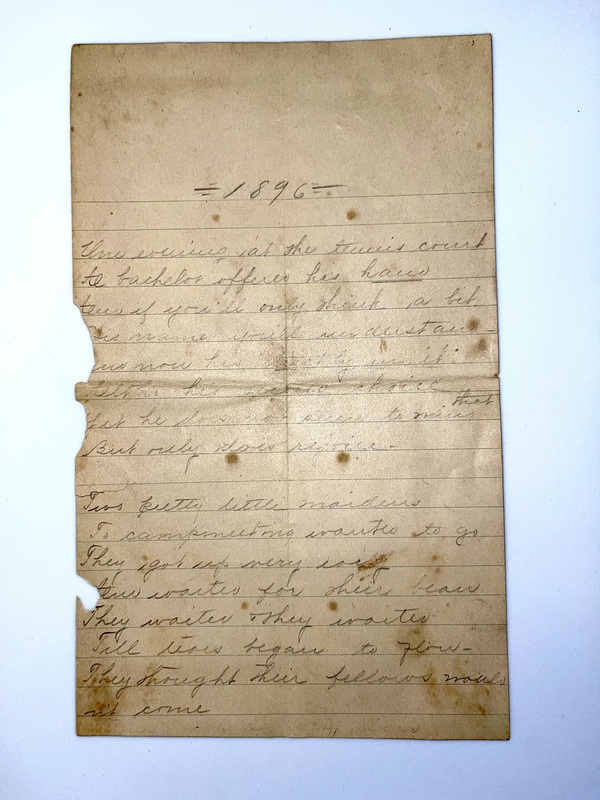 =1896=
One evening at the tennis court
A bachelor offered his hand
And if you'll only think a bit
His name you'll understand
And now his in it
his choice
Yet he does not seem to mind that
But only does rejoice-
Two pretty little maidens
To campmeeting wanted to go
They got up very
And waited for their beau
They waited & they waited
Till tears began to flow-
They thought their fellows would
n't come